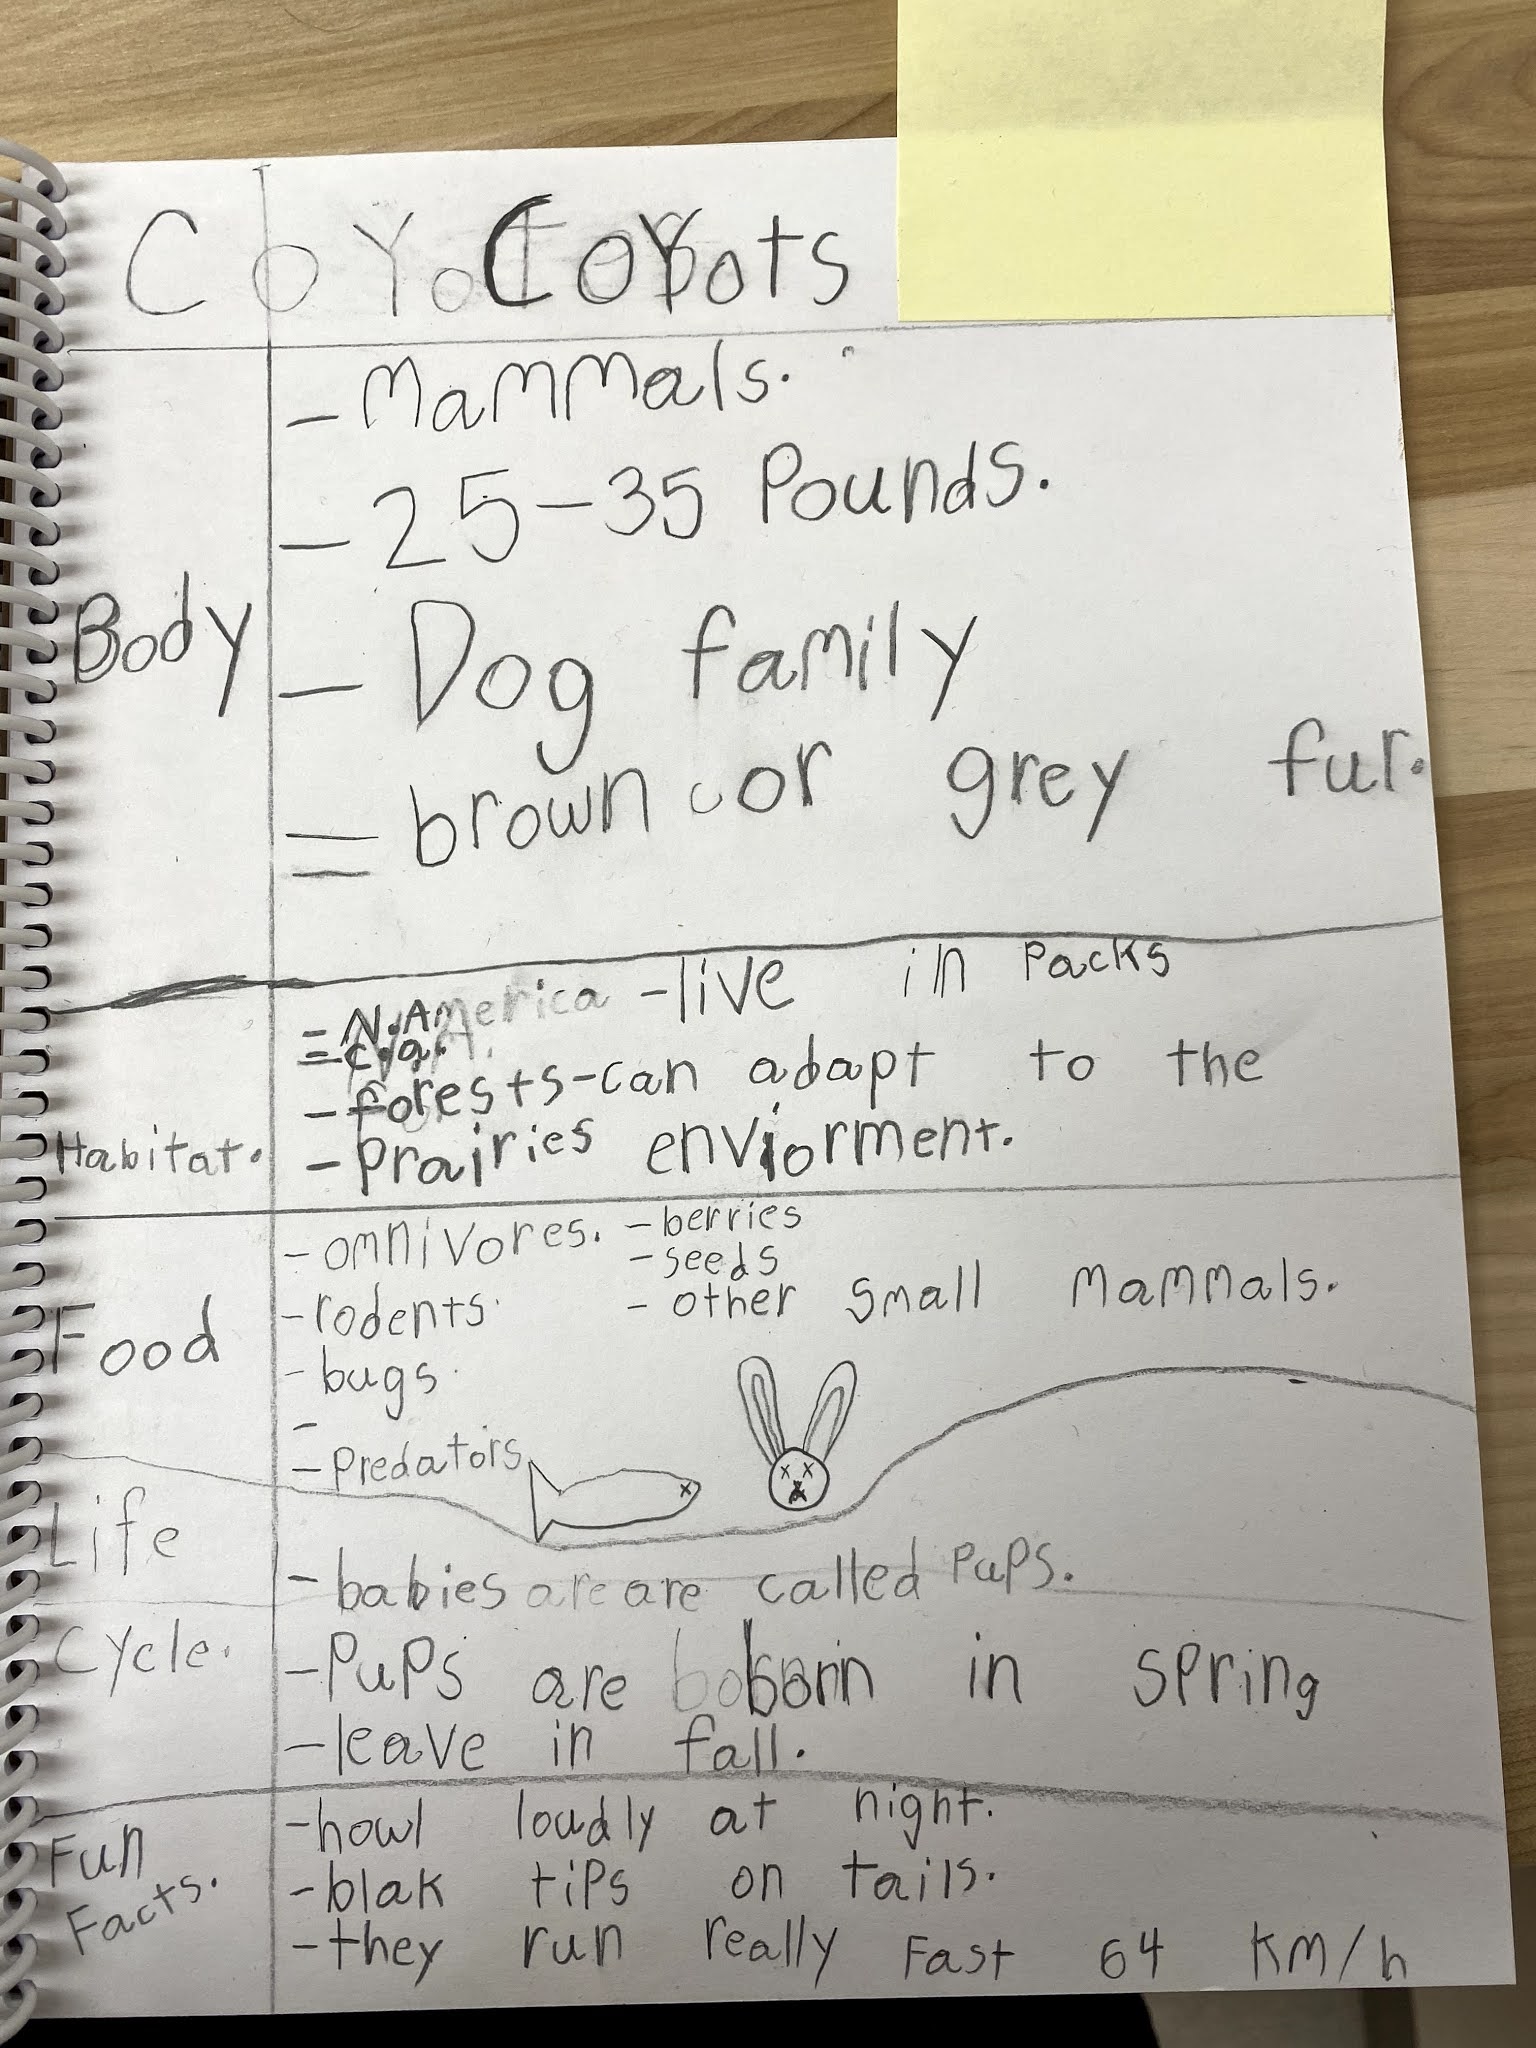 CoYo CoYots
Body
- Mammals.
- 25-35 Pounds.
- Dog family
= brown or grey fur.
Habitat.
- N.America - live in Packs
= c.a.
- forests - can adapt to the
- Prairies enviorment.
Food
- omnivores. - berries
- seeds
- rodents. - other small mammals.
- bugs.
-
- Predators
Life
Cycle.
- babies are are called Pups.
- Pups are born in spring
- leave in fall.
Fun
Facts.
- howl loudly at night.
- blak tips on tails.
- they run really Fast 64 KM/h